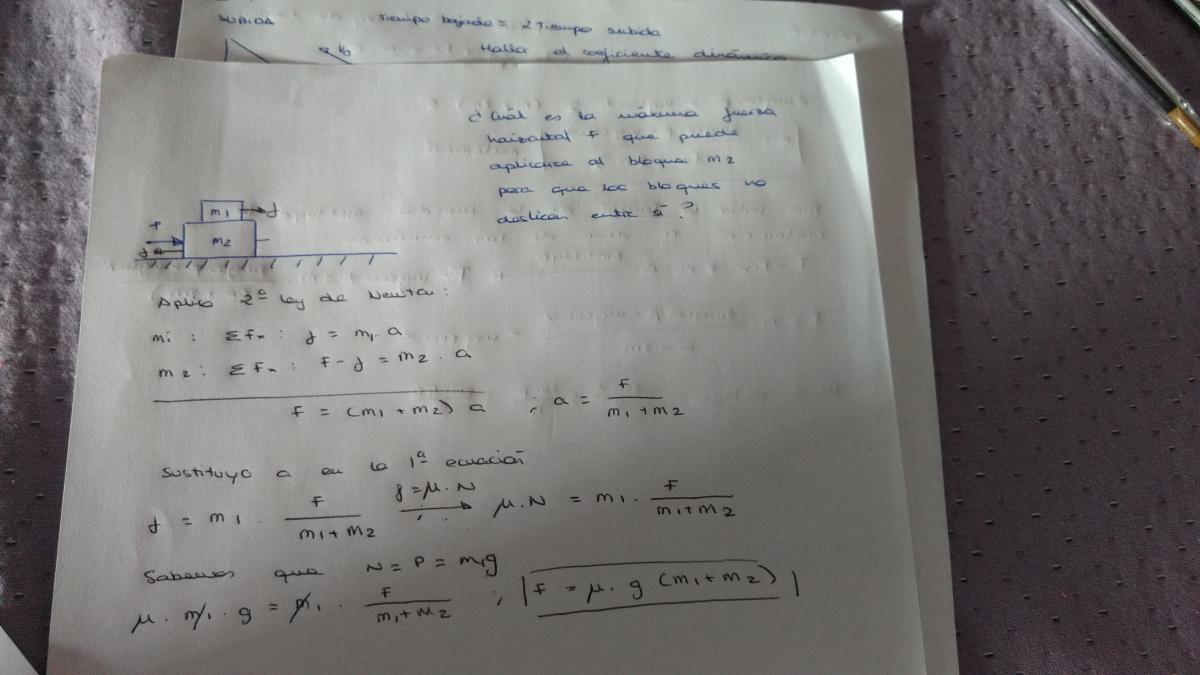 SUBIDA
Tiempo bajada = 2 Tiempo subida
Hallar el coeficiente dinámico
¿Cuál es la máxima fuerza
horizontal F que puede
aplicarse al bloque m2
para que los bloques no
deslicen entre sí?
m1 f
F
m2
f
Aplico 2ª ley de Newton:
m1: Σfx: f = m1 · a
m2: Σfx: F - f = m2 · a
F = (m1 + m2) a ; a = F / (m1 + m2)
Sustituyo a en la 1ª ecuación
f = m1 · F / (m1 + m2) f = μ·N → μ·N = m1 · F / (m1 + m2)
Sabemos que N = P = m1g
μ · m1 · g = m1 · F / (m1 + m2) ; F = μ · g (m1 + m2)